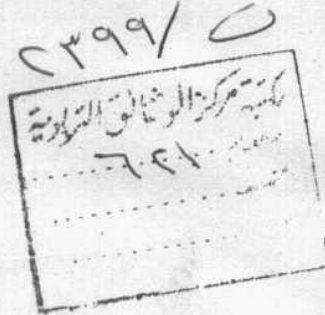 ٢٣٩٩/
مكتبة مركز الوثائق التربوية
٦٠٢١